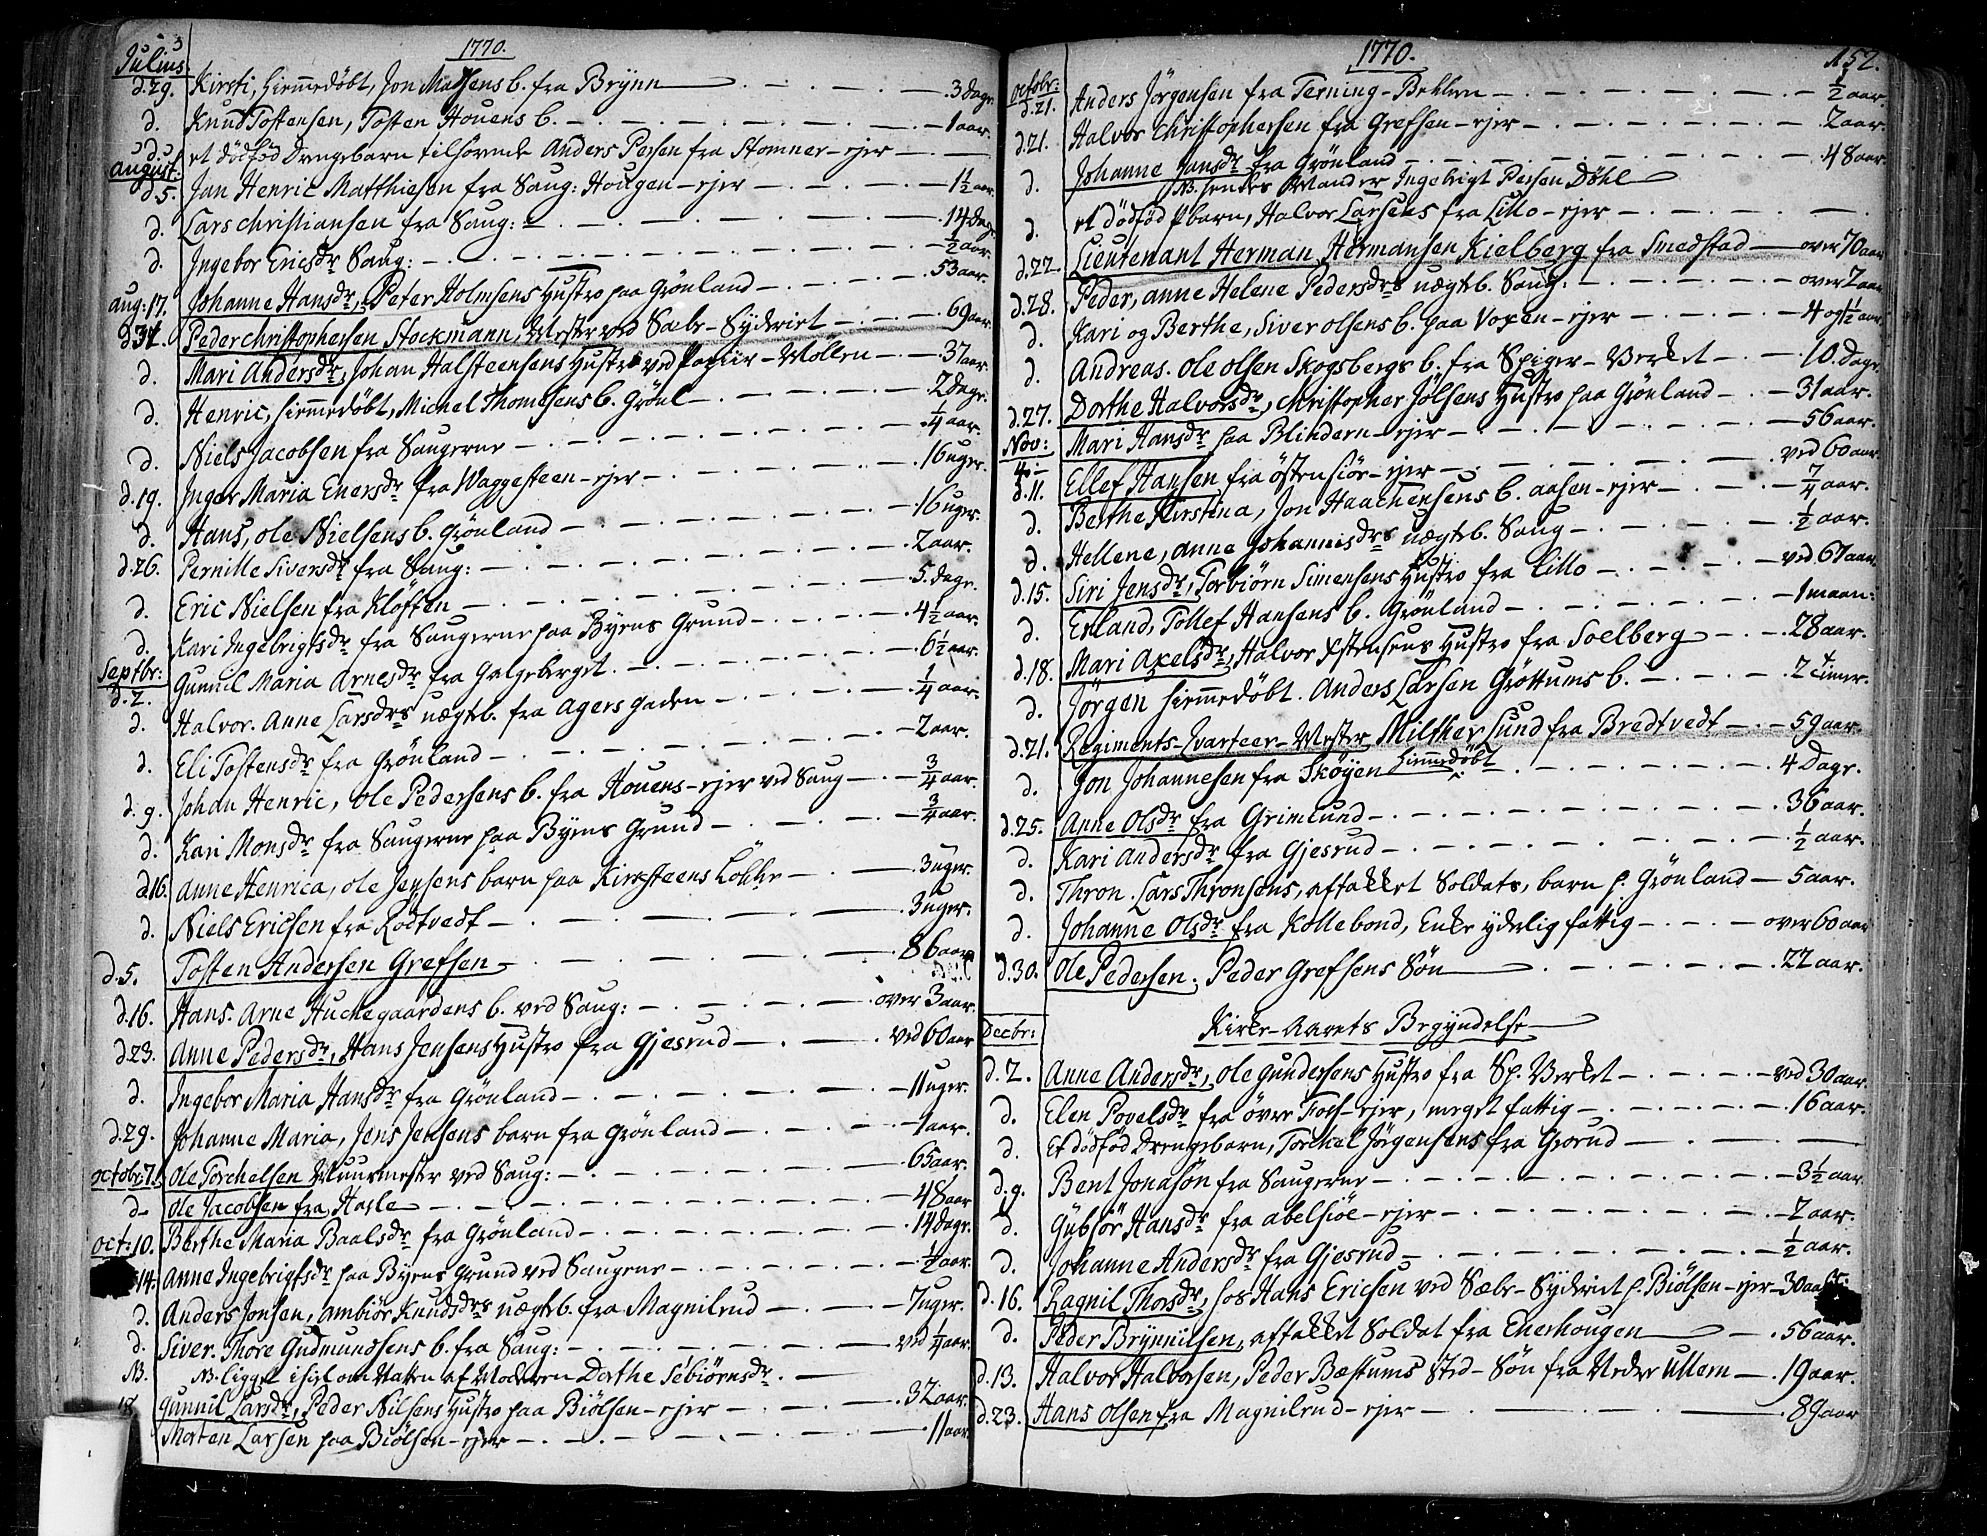 Julius 1770.
d. 29. Kirsti, hiemmedöbt, Jon Madsens b. fra Brÿnn 3 dage.
d. Knud Tostensen, Tosten Houens b. 1 aar.
d. et dödföd Drengebarn tilhörende Anders Persen fra Stomner-ejer
August.
d. 5. Jan Henric Matthiesen fra Saug: Hougen-ejer 1½ aar.
d. Lars Christiansen fra Saug: 14 dage.
d. Ingebor Ericsdr Saug: ½ aar.
aug: 17. Johanne Hansdr, Peter Holmsens Hustro paa Grönland 53 aar.
d. 31. Peder Christophersen Stockmann, Mester ved Sæbe-Syderiet 69 aar.
d. Mari Andersdr, Johan Halsteensens Hustro ved Papiir-Möllen 37 aar.
d. Henric, hiemmedöbt, Michel Thomesens b. Grönl 2 dage.
d. Niels Jacobsen fra Saugerne ¼ aar.
d. 19. Inger Maria Enersdr fra Waggesteen-ejer 16 uger.
d. Hans, Ole Nielsens b. Grönland 16 uger.
d. 26. Pernille Siversdr fra Saug: 2 aar.
d. Eric Nielsen fra Klöften 5. dage.
d. Kari Ingebrigtsdr fra Saugerne paa Byens Grund 4½ aar.
Septbr:
d. 2. Gunnil Maria Arnesdr fra Galgeberget 6½ aar.
d. Halvor. Anne Larsdrs uægteb. fra Agers gaden ¼ aar.
d. Eli Tostensdr fra Grönland 2 aar.
d. 9. Johan Henric, Ole Pedersens b. fra Houens-ejer ved Saug ¾ aar.
d. Kari Monsdr fra Saugerne paa Byens Grund ¾ aar.
d. 16. Anne Henrica, Ole Jensens barn paa Kirsteens Lökke 3 uger.
d. Niels Ericsen fra Rödtvedt 3 uger.
d. 5. Tosten Andersen Grefsen 86 aar
d. 16. Hans. Arne Huchegaardens b. ved Saug: over 3 aar.
d. 23. Anne Pedersdr, Hans Jensens Hustro fra Gjesrud ved 60 aar
d. Ingebor Maria Hansdr fra Grönland 11 uger.
d. 29. Johanne Maria, Jens Jensens barn fra Grönland 1 aar.
octobr. 7. Ole Torchelsen Muurmester ved Saug: 65 aar.
d Ole Jacobsen fra Hasle 48 aar
oct: 10. Berthe Maria Baalsdr fra Grönland 14 dage.
14. Anne Ingebrigtsdr paa Byens Grund ved Saugene ½ aar.
d. Anders Jonsen, Ambiör Knudsdrs uægteb. fra Magnilrud 7 uger.
d. Siver. Thore Gudmundsens b. fra Saug: ved ¼ aar.
NB. NB. ligget ihjel om Natten af Moderen Dorthe Sebiörnsdr.
18 Gunnil Larsdr, Peder Nilsens Hustro paa Biölsen-ejer 32 aar.
Morten Larsen paa Biölsen-ejer 11 aar.
1770. 152.
octobr:
d. 21. Anders Jörgensen fra Terning-Bekken ½ aar.
d. 21. Halvor Christophersen fra Grefsen-ejer 2 aar.
d. Johanne Jansdr fra Grönland 48 aar
NB. hendes Mand er Ingebrigt Persen Döhl
d. et dödföd Pbarn, Halvor Larsens fra Lillo-ejer
d. 22. Lieutenant Herman Hermansen Kielberg fra Smedstad over 70 aar
d. 28. Peder, Anne Helene Pedersdrs uægteb. Saug: over 2 aar
d. Kari og Berthe, Siver Olsens b. paa Voxen-ejer 4 og ½ aar
d. Andreas. Ole Olsen Skogsbergs b. fra Spiger-Verket 10. dage
d. 27. Dorthe Halvorsdr, Christopher Jölsens Hustro paa Grönland 31 aar.
Nov: Mari Hansdr paa Blindern-ejer 56 aar.
4.
d. 11. Ellef Hansen fra Östensiöe-ejer ved 60 aar.
d. Berthe Kirstina, Jon Haachensens b. aasen-ejer 7/4 aar.
d. Hellene, Anne Johannisdrs uægteb. Saug ½ aar.
d. 15. Siri Jensdr, Torbiörn Simensens Hustro fra Lillo ved 67 aar
d. Erland, Tollef Hansens b. Grönland 1 maan:
d. 18. Mari Axelsdr, Halvor Ystensens Hustro fra Soelberg 28 aar.
d. Jörgen hiemmedöbt. Anders Larsen Gröttums b. 2 timer.
d. 21. Regiments-Qvarteer-Mester Milther Lund fra Bredtvedt 59 aar.
d. Jon Johannesen fra Sköyen hiemmedöbt 4 Dage.
d. 25. Anne Olsdr fra Grimlund 36 aar.
d. Kari Andersdr fra Gjesrud ½ aar.
d. Thron. Lars Thronsens, aftakket Soldats, barn p. Grönland 5 aar.
d. Johanne Olsdr fra Kollebond, Enke yderlig fattig over 60 aar
d. 30. Ole Pedersen. Peder Grefsens Sön 22 aar.
Decbr: Kirke-Aarets Begyndelse
d. 2. Anne Andersdr, Ole Gundersens Hustro fra Sp. Verket ved 30 aar.
d. Elen Povelsdr fra övre Foss-ejer, meget fattig 16 aar.
d. Et dödföd Drengebarn, Torchel Jörgensens fra Grorud
d. 9. Bent Jonasön fra Saugerne 3½ aar.
d. Gubjör Hansdr fra Abelsiöe-ejer 7 aar.
d. Johanne Andersdr fra Gjesrud ½ aar.
d. 16. Ragnil Thorsdr, hos Hans Ericsen ved Sæbe-Syderiet p. Biölsen-ejer 30 aar
d. Peder Brynnilsen, aftakket Soldat fra Enerhougen 56 aar.
d. 13. Halvor Halvorsen, Peder Bæstums Sted-Sön fra Neder Ullern 19 aar.
d. 23. Hans Olsen fra Magnilrud-ejer 89 aar